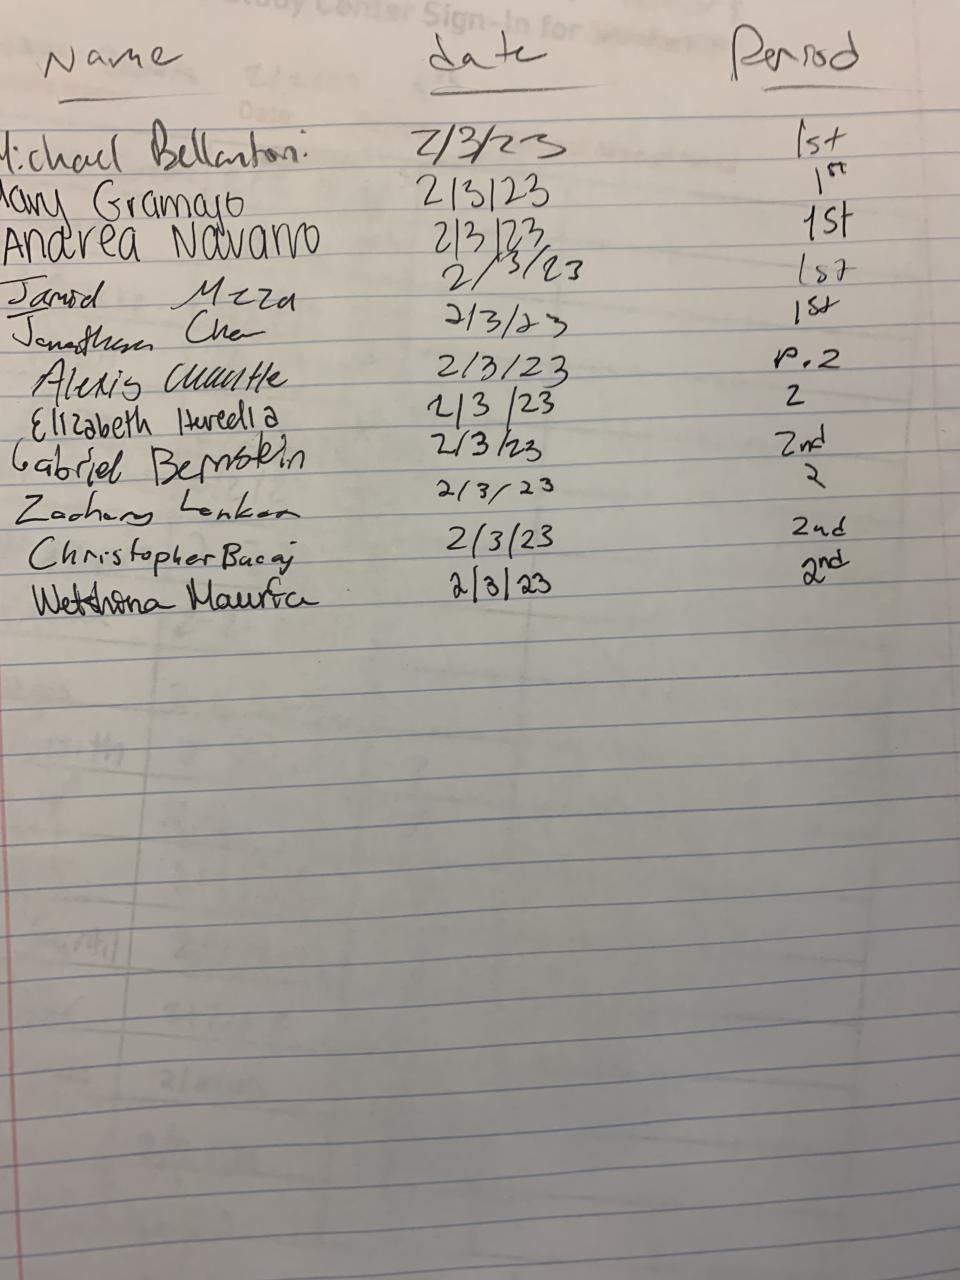 Study Center Sign-In for
Name date Period
Michael Bellantoni 2/3/23 1st
Mary Gramajo 2/3/23 1st
Andrea Navarro 2/3/23 1st
Jarrod Meza 2/3/23 1st
Jonathan 2/3/23 1st
Alexis 2/3/23 P.2
Elizabeth Heredia 2/3/23 2
Gabriel Bernstein 2/3/23 2nd
Zachary 2/3/23 2
Christopher Bacaj 2/3/23 2nd
2/3/23 2nd